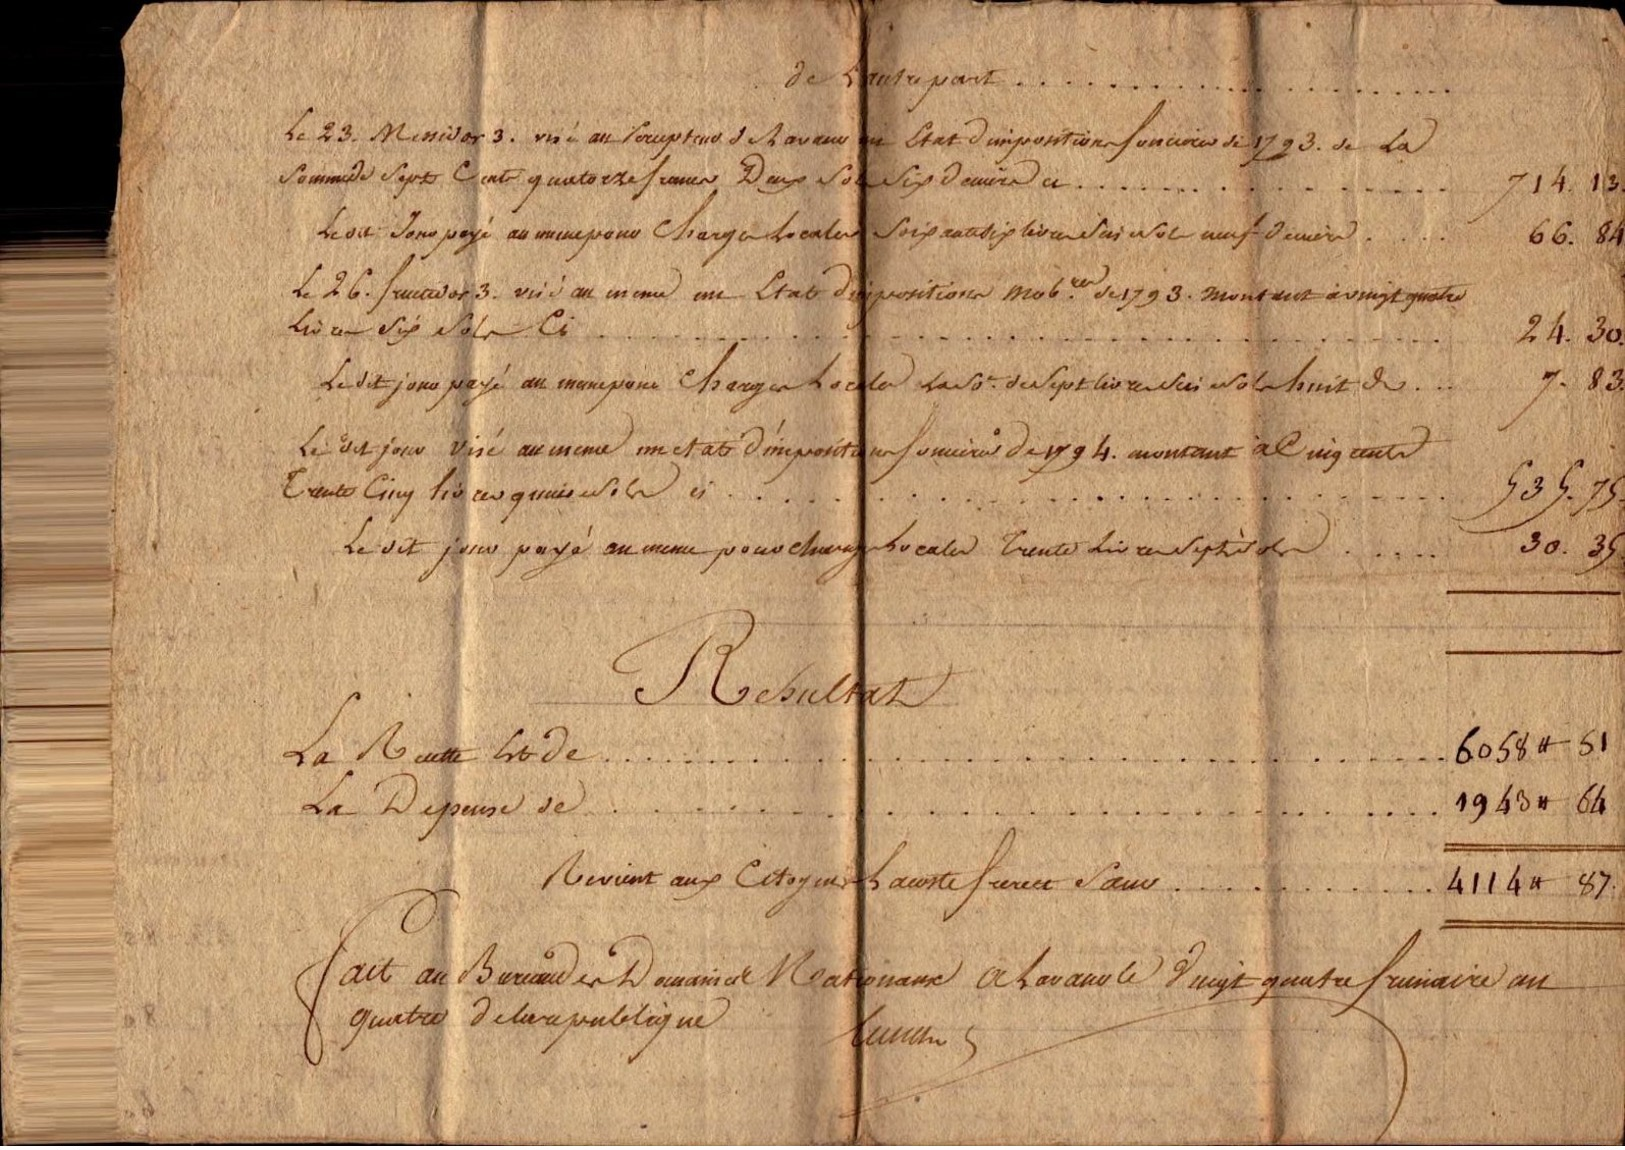 de Lautre part . . . . . . . . . . . . . . . . . . . .
Le 23. Messidor 3. visé au Percepteur de Lavaur un Etat d'imposition fonciere de 1793. de La
Somme de Sept Cent quatorze francs Deux Sols Six deniers ci . . . . . . . . . . . . . . . 714. 13.
Le dit Jour payé au meme pour Charges Locales Soixante six livres Seize Sols neuf deniers . . . . 66. 84
Le 26. fructidor 3. visé au meme un Etat d'imposition Mob.re de 1793. montant a vingt quatre
Livres Six Sols Ci . . . . . . . . . . . . . . . . . . . . . . . . . 24. 30.
Le dit jour payé au meme pour Charges Locales La So.e de Sept livres Seize Sols huit d . . . 7. 83.
Le dit jour visé au meme un etat d'imposition fonciere de 1794. montant à Cinq cents
Trente Cinq livres quinze Sols ci . . . . . . . . . . . . . . . . . . . . . . 535. 75.
Le dit jour payé au meme pour charges Locales Trente Livres Sept Sols . . . . . 30. 35.
Resultat
La Recette Est de . . . . . . . . . . . . . . . . . . . . . . . . 6058 ₶ 51
La Depense de . . . . . . . . . . . . . . . . . . . . . . . . 1943 ₶ 64
Revient aux Citoyens Lacoste frere et Sœur . . . . . . . . . . . 4114 ₶ 87.
Fait au Bureau des Domaines Nationaux a Lavaur le vingt quatre frimaire an
quatre de la republique